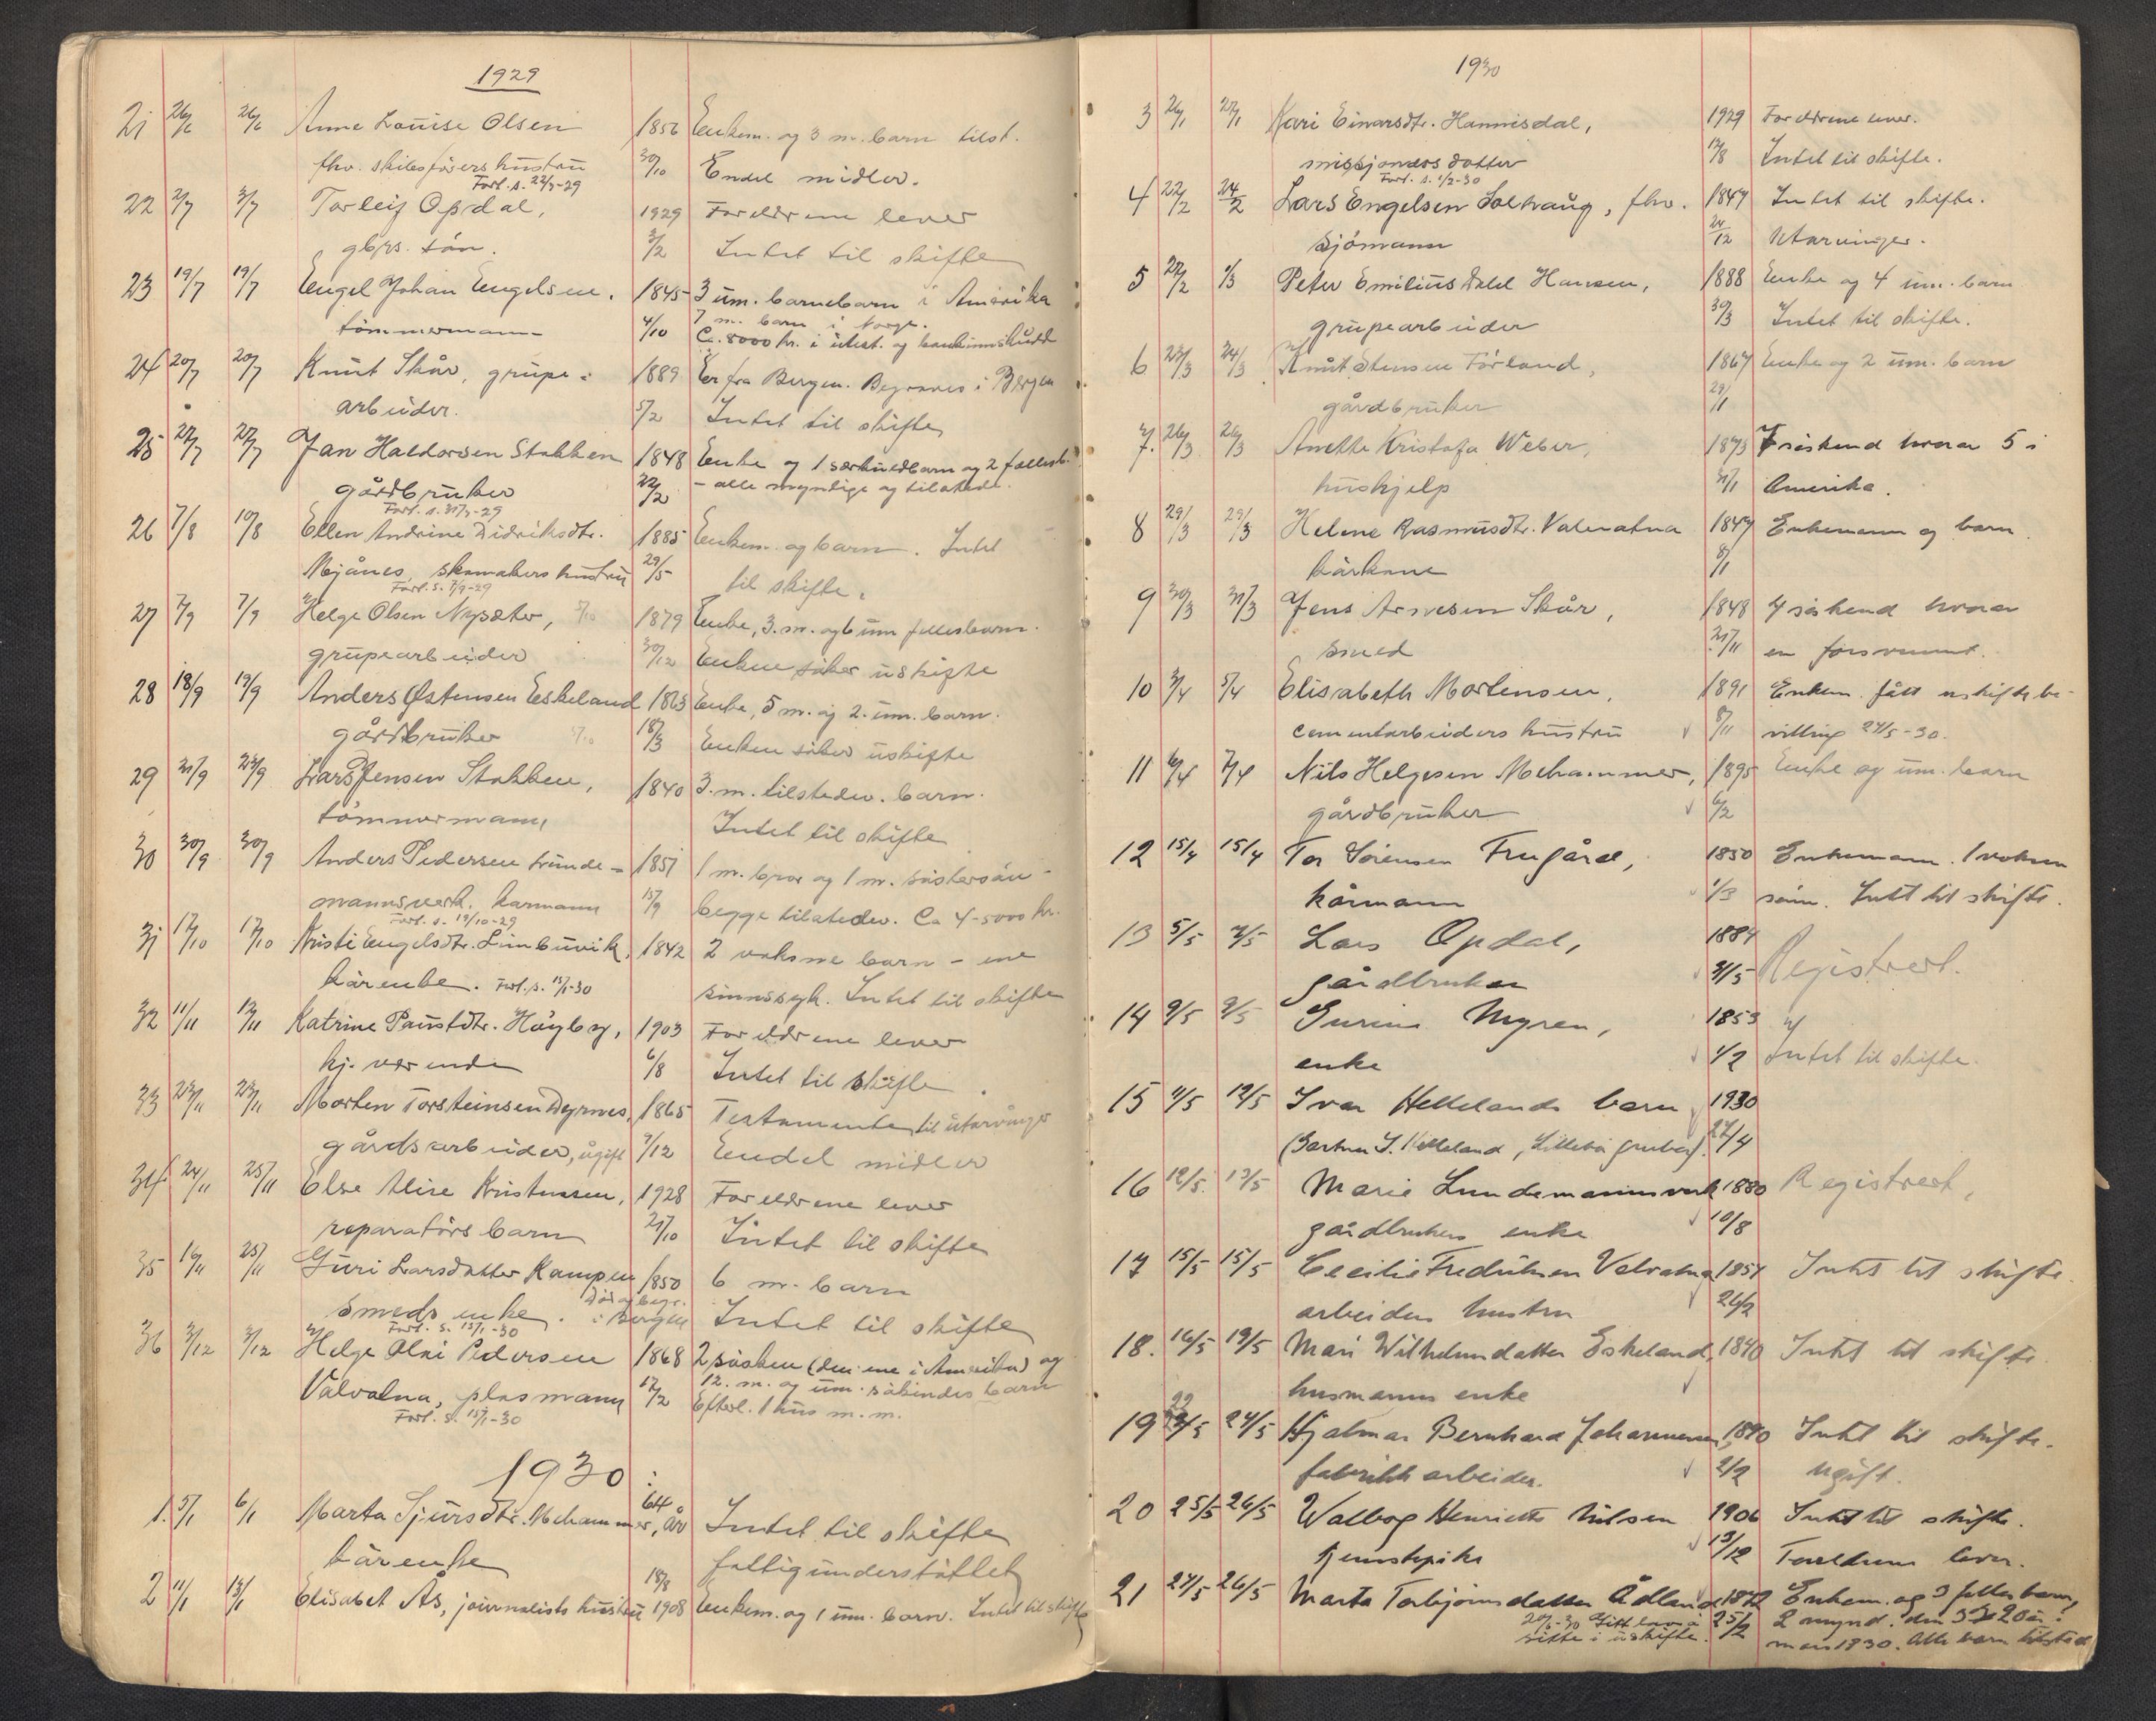 1929
21 26/6 26/6 Anne Louise Olsen 1856 Enkem. og 3 m. barn tilst.
fhv. skibsførers hustru 30/10 Endel midler.
Forl. s. 22/7-29
22 2/7 3/7 Torleif Opdal, 1929 Foreldrene lever
gbrs. sön. 3/2 Intet til skifte
23 19/7 19/7 Engel Johan Engelsen, 1845 3 um. barnebarn i Amerika
7 m. barn i Norge.
tömmermann 4/10 Ca. 8000 kr. i utest. og bankinnskudd
24 20/7 20/7 Knut Skår, grupe- 1889 Er fra Bergen. Begraves i Bergen
arbeider. 5/2 Intet til skifte
25 27/7 27/7 Jan Haldorsen Stokken 1848 Enke og 1 særkuldbarn og 2 fellesb.
gårdbruker 22/2 - alle myndige og tilstede.
Forl. s. 31/7-29
26 7/8 10/8 Ellen Andrine Didriksdtr. 1885 Enkem. og barn. Intet
Mjånes, skomakers hustru 29/5 til skifte.
Forl. s. 7/9-29
27 7/9 7/9 Helge Olsen Nysæter, 1879 Enke, 3. m. og 6 um fellesbarn.
grupearbeider 30/12 Enken söker uskifte
28 18/9 19/9 Anders Østensen Eskeland 1863 Enke, 5 m. og 2. um. barn.
gårdbruker 18/3 Enken söker uskifte
29 21/9 23/9 Lars Jensen Stokken, 1840 3. m. tilstedev. barn.
tömmermann Intet til skifte
30 30/9 30/9 Anders Pedersen Lunde- 1851 1 m. bror og 1 m. söstersön -
mannsverk. kårmann 15/9 begge tilstedev. Ca 4-5000 kr.
Forl. s. 19/10-29
31 17/10 17/10 Kristi Engelsdtr. Limbuvik, 1842 2 voksne barn - ene
kårenke. Forl. s. 15/1-30 sinnssyk. Intet til skifte
32 11/11 12/11 Katrine Paulsdtr. Höyby, 1903 Foreldrene lever
hj. værende 6/8 Intet til skifte
33 23/11 23/11 Morten Torsteinsen Dyrnes, 1865 Testamente til utarvinger
gårdsarbeider, ugift 9/12 Endel midler
34 24/11 25/11 Else Alise Kristensen, 1928 Foreldrene lever
reparatörs barn 21/10 Intet til skifte
35 16/11 25/11 Guri Larsdatter Kampen 1850 6 m. barn
smeds enke. Död og begr. i Bergen Intet til skifte
Forl. s. 15/1-30
36 3/12 3/12 Helge Olai Pedersen 1868 2 søsken (den ene i Amerika) og
12. m. og um. søskendes barn
Valvatna, plasmann 17/2 Efterl. 1 hus m. m.
Forl. s. 15/1-30
1930
1. 5/1 6/1 Marta Sjursdtr. Mehammer, 64 år Intet til skifte
kårenke fattigunderstöttet
2 11/1 13/1 Elisabet Ås, journalists hustru 18/8 1908 Enkem. og 1 um. barn. Intet til skifte
1930
3 26/1 27/1 Kari Einarsdtr. Hannisdal, 1929 Foreldrene lever.
misjonærs datter 12/8 Intet til skifte.
Forl. s. 1/2-30
4 22/2 24/2 Lars Engelsen Solhaug, fhv. 1847 Intet til skifte.
sjömann 24/12 Utarvinger.
5 27/2 1/3 Peter Emilius Dahl Hansen, 1888 Enke og 4 um. barn
grupearbeider 30/3 Intet til skifte.
6 23/3 24/3 Knut Stensen Förland, 1867 Enke og 2 um. barn
gårdbruker 29/1
7. 26/3 26/3 Anette Kristofa Weber, 1873 7 söskend hvorav 5 i
huskjelp 31/1 Amerika.
8 29/3 29/3 Helene Rasmusdtr. Valvatna 1847 Enkemann og barn
kårkone 8/1
9 30/3 31/3 Jens Arnesen Skår, 1848 4 söskend hvorav
smed 21/11 en forsvunnet.
10 3/4 5/4 Elisabeth Mortensen, 1891 Enkem. fått uskiftebe-
cementarbeiders hustru 8/11 villing 24/5-30.
11 6/4 7/4 Nils Helgesen Mehammer, 1895 Enke og um. barn
gårdbruker 6/2
12 15/4 15/4 Tor Sörensen Frugård, 1850 Enkemann. 1 voksen
kårmann 1/3 sönn. Intet til skifte.
13 5/5 7/5 Lars Opdal, 1884
gårdbruker 31/5 Registrert.
14 9/5 9/5 Gurine Myren, 1853
enke 1/2 Intet til skifte.
15 11/5 12/5 Ivar Hetlelands barn 1930
(Gartner I. Hetleland, Litlabö gruber). 27/4
16 12/5. 13/5 Marie Lundemannsverk 1880 Registrert,
gårdbrukers enke 10/8
17 15/5 15/5 Cecilie Fredriksen Valvatna 1851 Intet til skifte.
arbeiders hustru 26/2
18. 16/5 19/5 Mari Wilhelmsdatter Eskeland, 1840 Intet til skifte.
husmanns enke
19 22/5 24/5 Hjalmar Bernhard Johannesen, 1890 Intet til skifte.
fabrikkarbeider. 2/2 Ugift.
20 25/5 26/5 Walborg Henriette Nilsen 1906 Intet til skifte.
tjenestepike 13/12 Foreldrene lever.
21 24/5 26/5 Marta Torbjörnsdatter Ådland 1872 Enkem. og 3 felles barn,
20/6-30 Gitt lov å 25/2 2 mynd. den 3die 20 år
sitte i uskifte. mai 1930. Alle barn tilstede